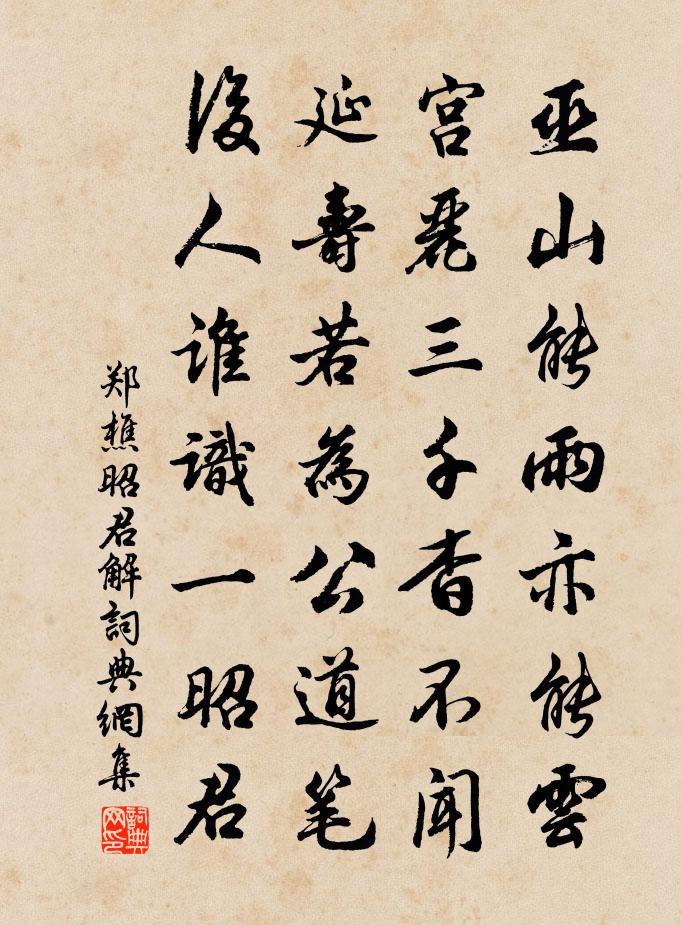 巫山能雨亦能雲
宫麗三千杳不聞
延壽若為公道笔
後人誰識一昭君
郑樵昭君解詞典網集
詞典网印